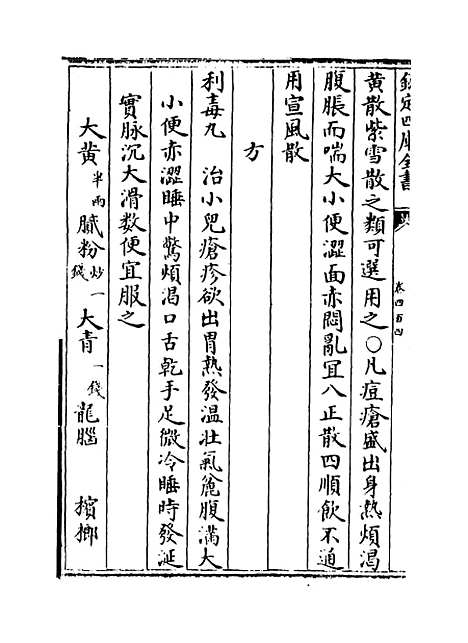 欽定四庫全書
卷四百四
黄散紫雪散之類可選用之〇凡痘瘡盛出身熱煩渴
腹脹而喘大小便澀面赤悶亂宜八正散四順飲不通
用宣風散
方
利毒丸 治小兒瘡疹欲出胃熱發温壯氣麄腹滿大
小便赤澀睡中驚煩渴口舌乾手足微冷睡時發涎
實脉沉大滑數便宜服之
大黄半兩 膩粉炒一錢 大青一錢 龍腦 檳榔